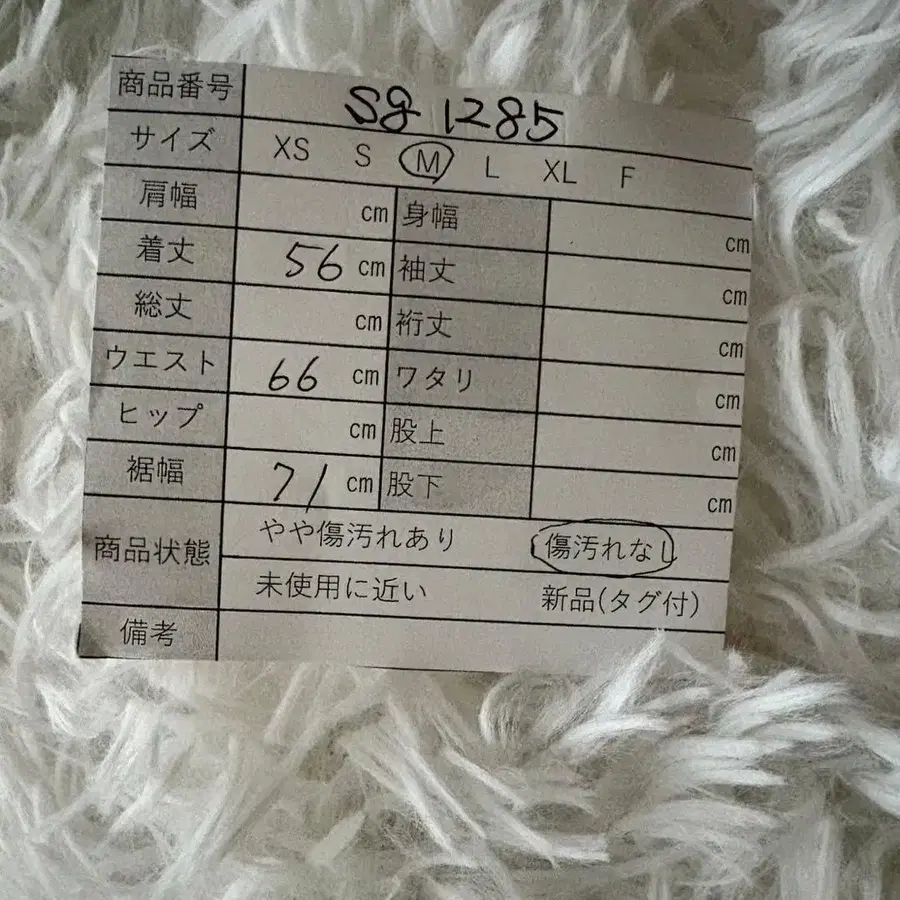 商品番号 Sg 1285
サイズ XS S M L XL F
肩幅 cm 身幅 cm
着丈 56 cm 袖丈 cm
総丈 cm 裄丈 cm
ウエスト 66 cm ワタリ cm
ヒップ cm 股上 cm
裾幅 71 cm 股下 cm
商品状態 やや傷汚れあり 傷汚れなし
未使用に近い 新品(タグ付)
備考